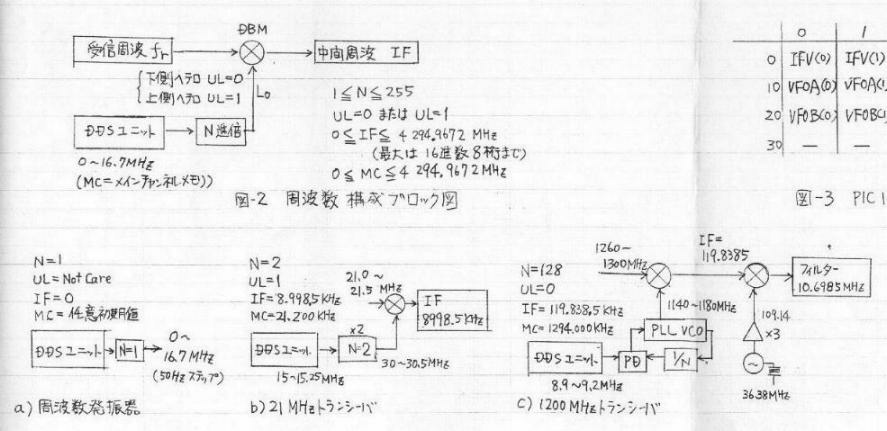 DBM
受信周波 fr
中間周波 IF
下側ヘテロ UL=0
上側ヘテロ UL=1
Lo
DDSユニット
N逓倍
0~16.7MHz
(MC=メインチャンネルメモリ)
1≦N≦255
UL=0 または UL=1
0≦IF≦4 294.9672 MHz
(最大は16進数8桁まで)
0≦MC≦4 294.9672 MHz
図-2 周波数構成ブロック図
0 1
0 IFV(0) IFV(1)
10 VFOA(0) VFOA(1
20 VFOB(0) VFOB(1
30 — —
図-3 PIC
N=1
UL=Not Care
IF=0
MC=任意初期値
DDSユニット
N=1
0~
16.7MHz
(50Hzステップ)
a) 周波数発振器
N=2
UL=1
IF=8.998,5KHz
MC=21.200KHz
21.0~
21.5 MHz
IF
8998.5KHz
×2
DDSユニット
N=2
15~15.25MHz
30~30.5MHz
b) 21MHzトランシーバ
N=128
UL=0
IF=119.838,5KHz
MC=1294.000KHz
1260~
1300MHz
IF=
119.8385
フィルター
10.6985MHz
1140~1180MHz
PLL VCO
DDSユニット
PD
1/N
8.9~9.2MHz
109.14
×3
36.38MHz
c) 1200MHzトランシーバ